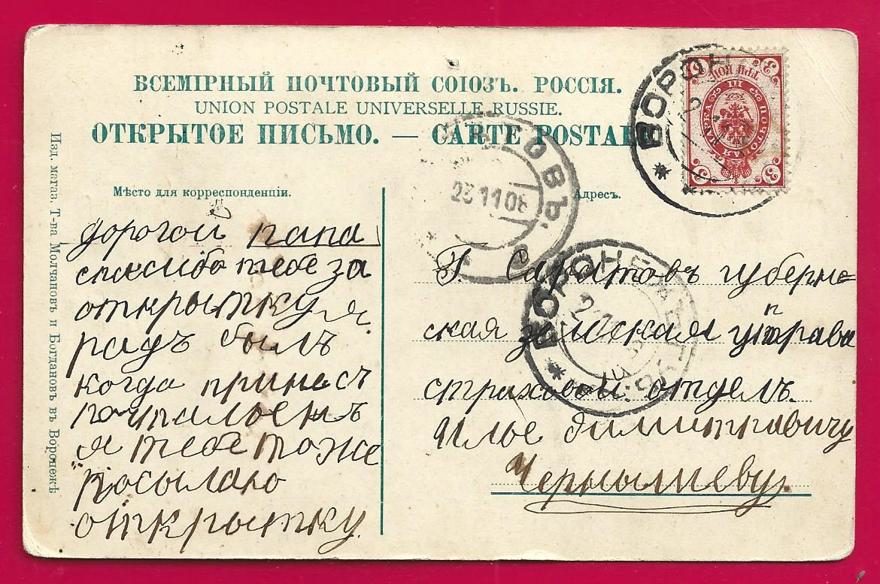 ВСЕМІРНЫЙ ПОЧТОВЫЙ СОЮЗЪ. РОССІЯ.
UNION POSTALE UNIVERSELLE RUSSIE.
ОТКРЫТОЕ ПИСЬМО. — CARTE POSTALE
Мѣсто для корреспонденціи.
Адресъ.
Дорогой папа
спасибо тебе за
открытку я
радъ былъ
когда принесъ
почтальонъ
я тебе тоже
посылаю
открытку.
Г. Саратовъ губерне
ская земская управа
страховой отдел.
Илье Димитравичу
Чернышеву.
Изд. магаз. Т-ва Молчановъ и Богдановъ въ Воронежѣ
23 11 08
ВОРОНЕЖЪ
ВОРОН
3
3
3
3